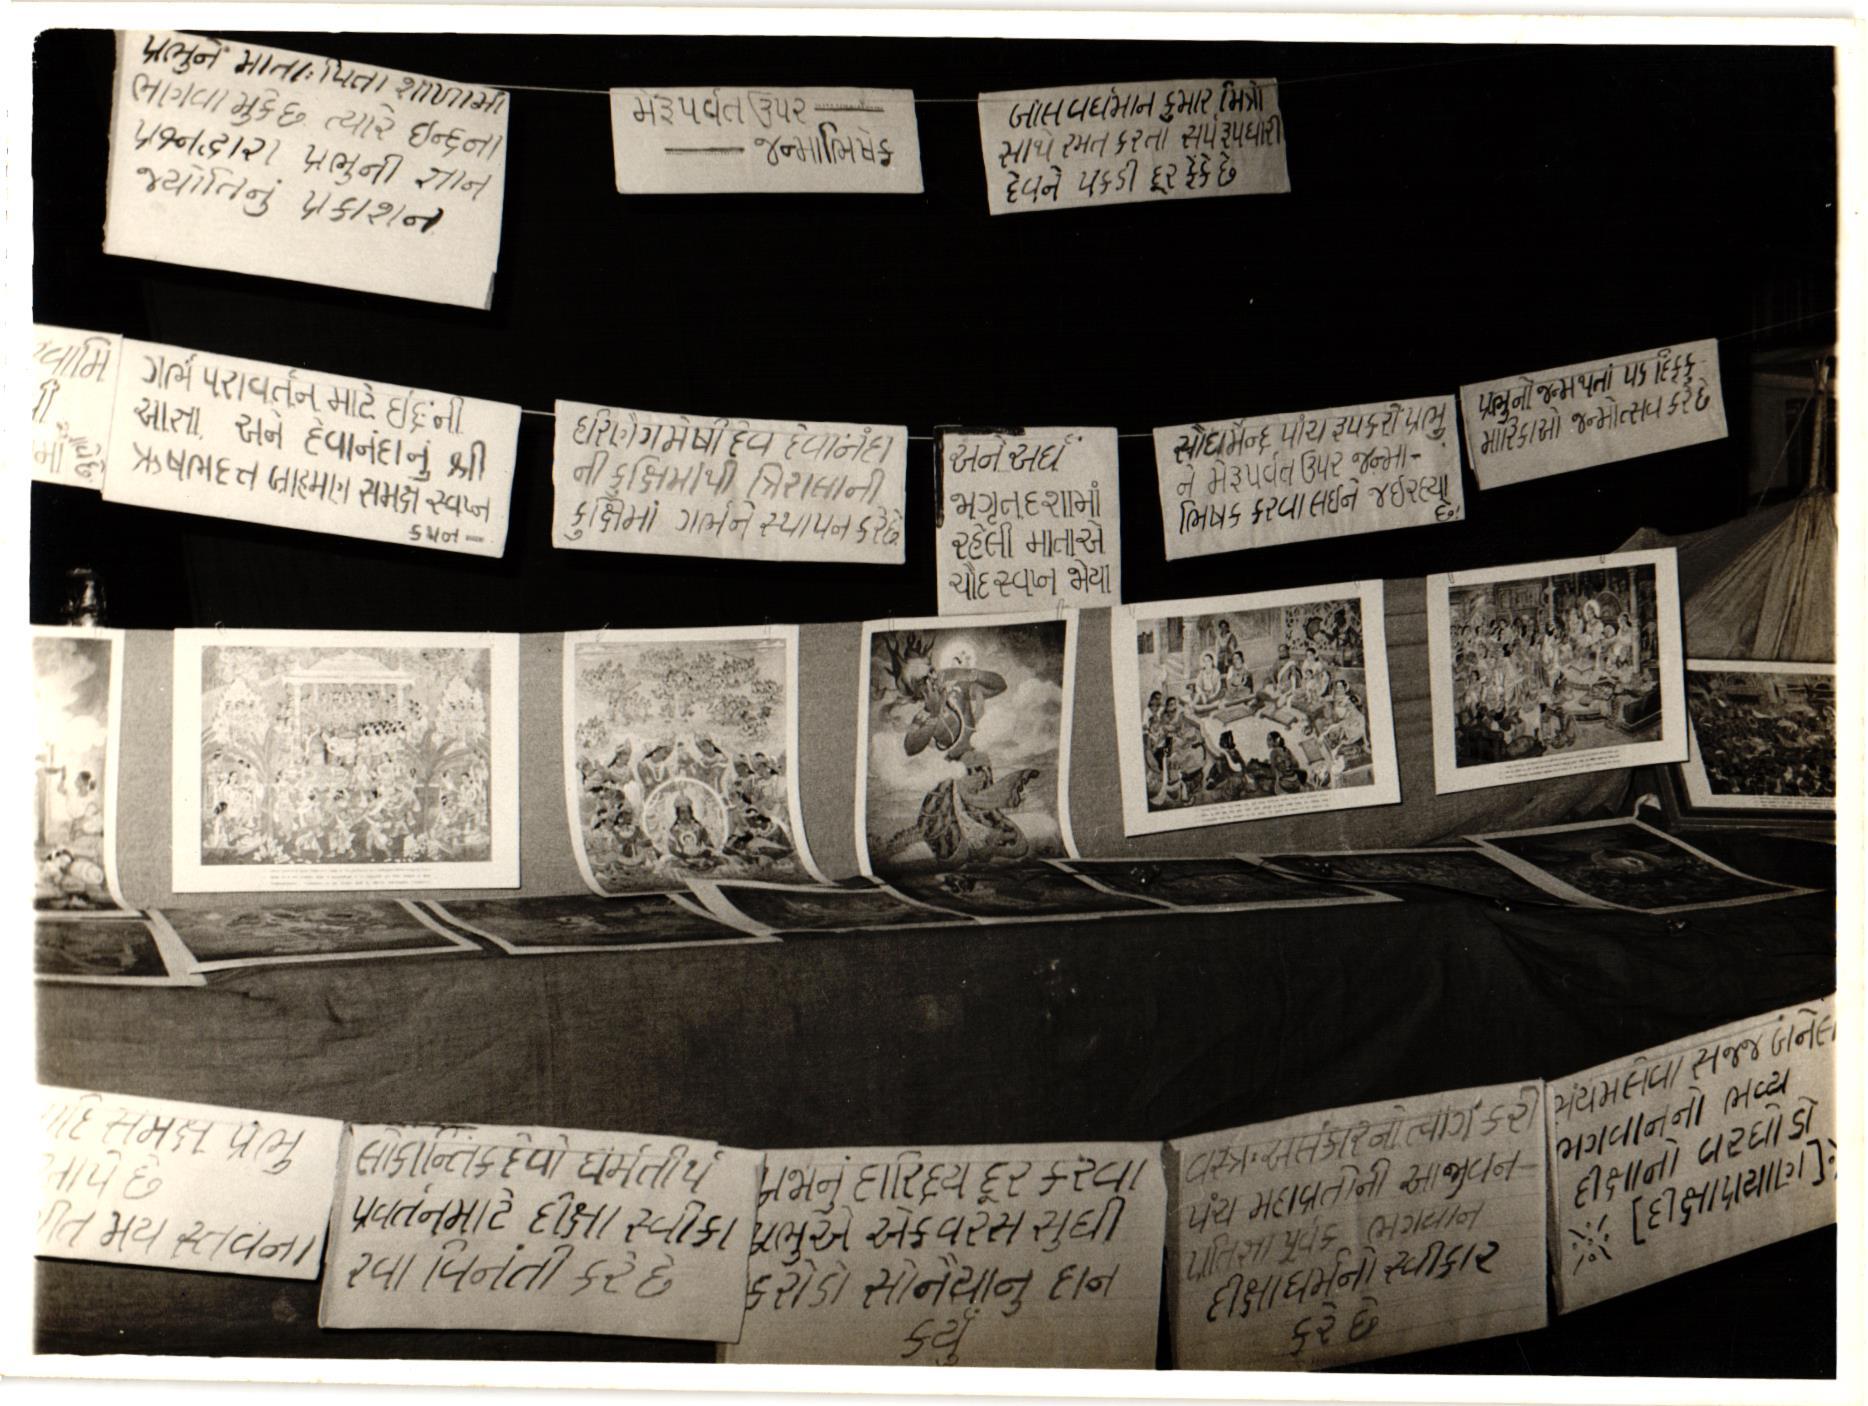 પ્રભુને માતા:પિતા શાળામાં
ભણવા મુકે છે ત્યારે ઇન્દ્રના
પ્રશ્ન.દ્વારા પ્રભુની જ્ઞાન
જ્યોતિનું પ્રકાશન
મેરૂપર્વત ઉપર
જન્માભિષેક
બાલ વર્ધમાન કુમાર મિત્રો
સાથે રમત કરતા સર્પ રૂપધારી
દેવને પકડી દૂર ફેંકે છે
ગર્ભ પરાવર્તન માટે ઇંદ્રની
આજ્ઞા. અને દેવાનંદાનું શ્રી
ઋષભદત્ત બ્રાહ્મણ સમક્ષ સ્વપ્ન
કથન
હરિણૈગમેષી દેવ દેવાનંદા
ની કુક્ષિમાંથી ત્રિશલાની
કુક્ષિમાં ગર્ભને સ્થાપન કરેછે
અને અર્ધ
જાગૃતદશામાં
રહેલી માતાએ
ચૌદસ્વપ્ન જોયા
સૌધર્મેન્દ્ર પાંચ રૂપકરી પ્રભુ
ને મેરૂપર્વત ઉપર જન્મા-
ભિષેક કરવા લઇને જઇરહ્યા
છે.
પ્રભુનો જન્મ થતાં ૫૬ દિક્ક્
મારિકાઓ જન્મોત્સવ કરે છે
સમક્ષ પ્રભુ
છે
મય સ્તવના
લોકાન્તિકદેવો ધર્મતીર્થ
પ્રવર્તનમાટે દીક્ષા સ્વીકા
રવા વિનંતી કરે છે
દારિદ્ર્ય દૂર કરવા
પ્રભુએ એક વરસ સુધી
કરોડો સોનૈયાનુ દાન
કર્યું
વસ્ત્ર:અલંકારનો ત્યાગ કરી
પંચ મહાવ્રતોની આજીવન
પ્રતિજ્ઞા પૂર્વક ભગવાન
દીક્ષાધર્મનો સ્વીકાર
કરે છે
સંયમ લેવા સજ્જ બનેલા
ભગવાનનો ભવ્ય
દીક્ષાનો વરઘોડો
[દીક્ષાપ્રયાણ]